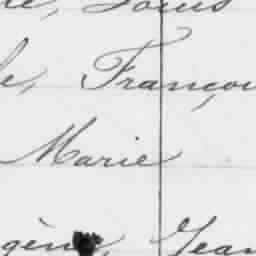 le, Louis
le, François
Marie
gène, Jean